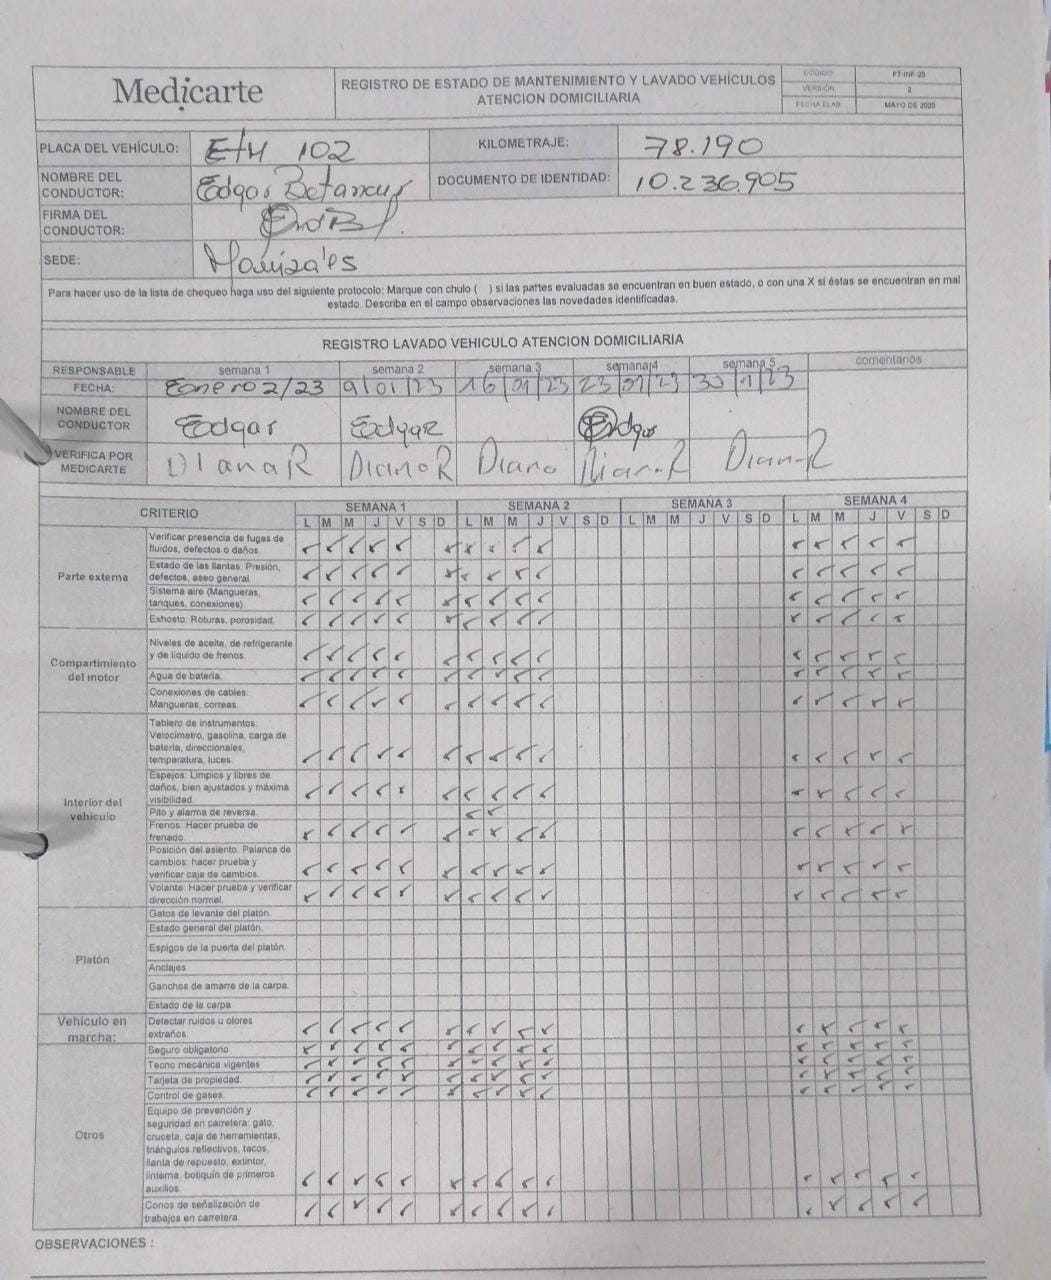 Medicarte
REGISTRO DE ESTADO DE MANTENIMIENTO Y LAVADO VEHÍCULOS
ATENCION DOMICILIARIA
CÓDIGO FT-INF-23
VERSIÓN 3
FECHA ELAB MAYO DE 2020
PLACA DEL VEHÍCULO: ETH 102 KILOMETRAJE: 78.190
NOMBRE DEL CONDUCTOR: Edgar Betancur DOCUMENTO DE IDENTIDAD: 10.236.905
FIRMA DEL CONDUCTOR:
SEDE: Manizales
Para hacer uso de la lista de chequeo haga uso del siguiente protocolo: Marque con chulo ( ) si las partes evaluadas se encuentran en buen estado, o con una X si éstas se encuentran en mal
estado. Describa en el campo observaciones las novedades identificadas.
REGISTRO LAVADO VEHICULO ATENCION DOMICILIARIA
RESPONSABLE semana 1 semana 2 semana 3 semana 4 semana 5 comentarios
FECHA: Enero 2/23 9/01/23 16/01/23 23/01/23 30/1/23
NOMBRE DEL CONDUCTOR Edgar Edgar Edgar
VERIFICA POR MEDICARTE Diana R Diana R Diana Diana R Diana R
CRITERIO SEMANA 1 SEMANA 2 SEMANA 3 SEMANA 4
L M M J V S D L M M J V S D L M M J V S D L M M J V S D
Parte externa
Verificar presencia de fugas de
fluidos, defectos o daños.
Estado de las llantas: Presión,
defectos, aseo general.
Sistema aire (Mangueras,
tanques, conexiones).
Exhosto: Roturas, porosidad.
Compartimiento
del motor
Niveles de aceite, de refrigerante
y de líquido de frenos.
Agua de batería.
Conexiones de cables:
Mangueras, correas.
Interior del
vehículo
Tablero de instrumentos:
Velocímetro, gasolina, carga de
batería, direccionales,
temperatura, luces.
Espejos: Limpios y libres de
daños, bien ajustados y máxima
visibilidad.
Pito y alarma de reversa.
Frenos: Hacer prueba de
frenado.
Posición del asiento. Palanca de
cambios: hacer prueba y
verificar caja de cambios.
Volante: Hacer prueba y verificar
dirección normal.
Platón
Gatos de levante del platón.
Estado general del platón.
Espigos de la puerta del platón.
Anclajes
Ganchos de amarre de la carpa.
Estado de la carpa
Vehículo en
marcha:
Detectar ruidos u olores
extraños.
Otros
Seguro obligatorio
Tecno mecánica vigentes
Tarjeta de propiedad.
Control de gases.
Equipo de prevención y
seguridad en carretera: gato,
cruceta, caja de herramientas,
triángulos reflectivos, tacos,
llanta de repuesto, extintor,
linterna, botiquín de primeros
auxilios.
Conos de señalización de
trabajos en carretera.
OBSERVACIONES :